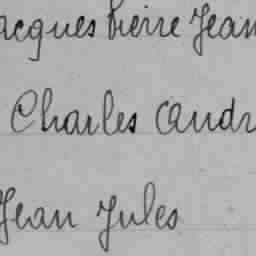 acques Pierre Jean
Charles Candr
Jean Jules